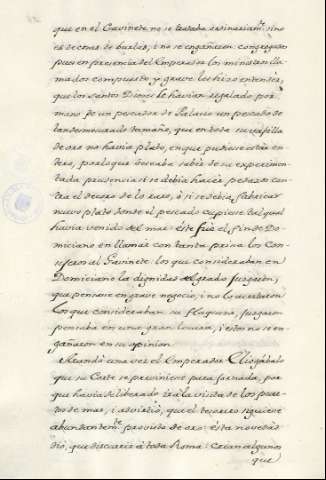 que en el Gavinete no se trataba ordinariam.te sino
es de cosas de burlas, i no se engañaron: congregaro
pues en presencia del Emperador los ministros lla
mados compuesto y grave les hizo entender,
que los santos Dioses le havian regalado por
mano de un pescador de Palaus un pescado de
tan desmesurado tamaño, que en toda su vajilla
de oro no havia plato, en que pudiese estar en
tero, por lo que deseaba saber de su experimen
tada prudencia si se debia hacer pedazos con
tra el decoro de lo raro, ó si se debia fabricar
nuevo plato donde el pescado cupiese tal qual
havia venido del mar: éste fué el fin de Do
miciano en llamar con tanta prisa los Con
sejeros al Gavinete los que consideraban en
Domiciano la dignidad el grado juzgaron,
que pensase en grave negocio, i no lo acertaron
Los que consideraban su flaqueza, juzgaron
pensaba en una gran locura, i estos no se en
gañaron en su opinion
Mandó una vez el Emperador Eliogábalo
que su Corte se previniese para jornada, por
que havia deliberado ir á la visita de los puer
tos de mar, i advirtió, que el tesorero siguiese
abundantem.te provisto de oro: ésta novedad
dió, que discurrir á toda Roma: Creian algunos
que